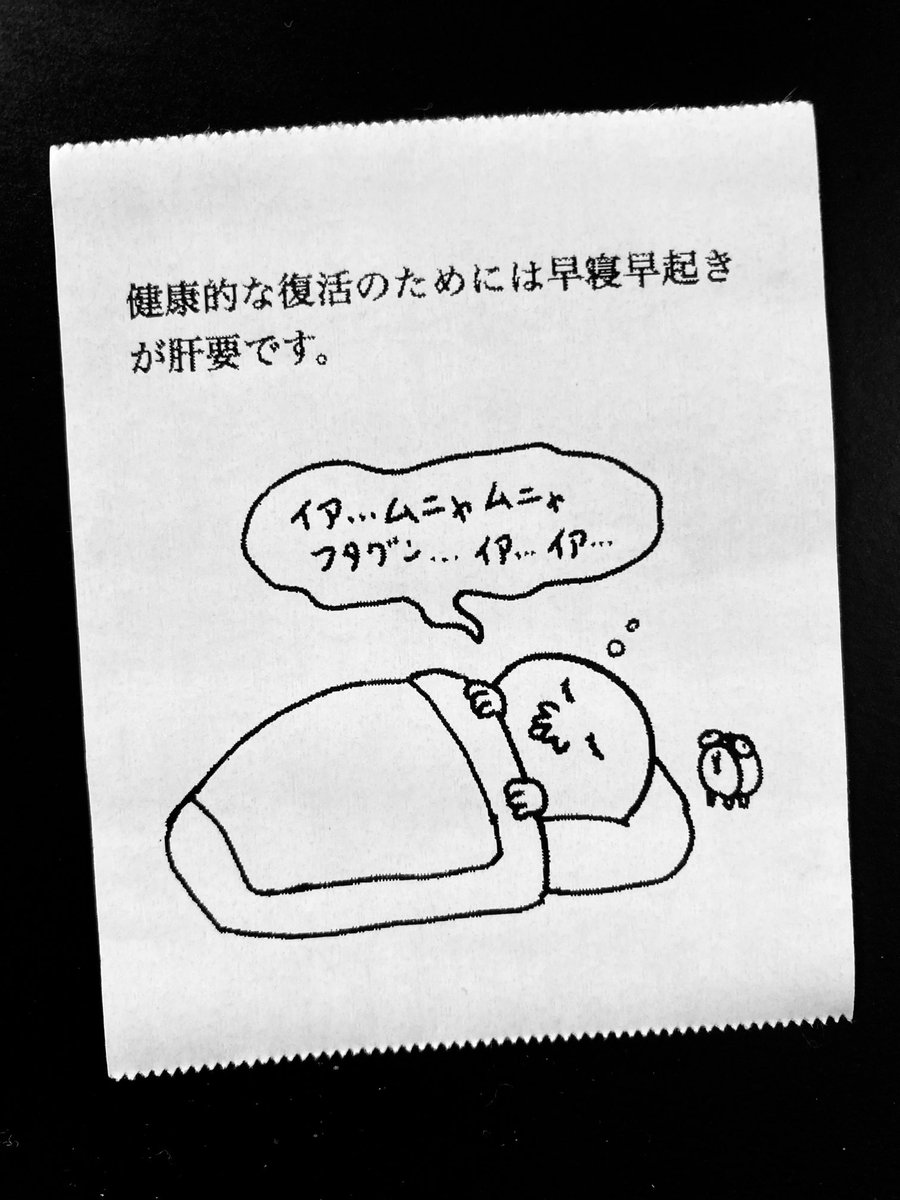 健康的な復活のためには早寝早起き
が肝要です。
イア…ムニャムニャ
フタグン…イア…イア…